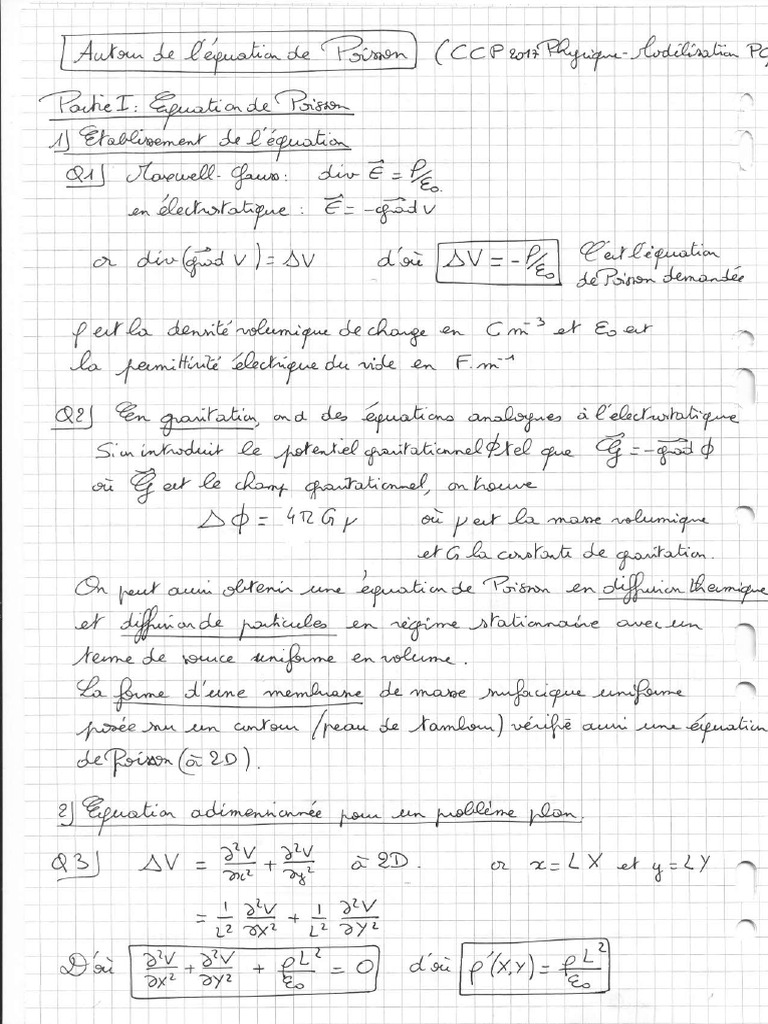 Autour de l'équation de Poisson (CCP 2017 Physique-Modélisation PC)
Partie I : Equation de Poisson
1) Etablissement de l'équation
Q1) Maxwell-Gauss : div E⃗ = ρ/ε₀.
en électrostatique : E⃗ = -grad⃗ V
or div(grad⃗ V) = ΔV d'où ΔV = -ρ/ε₀ C'est l'équation
de Poisson demandée
ρ est la densité volumique de charge en C m⁻³ et ε₀ est
la permittivité électrique du vide en F.m⁻¹
Q2) En gravitation, on a des équations analogues à l'électrostatique
Si on introduit le potentiel gravitationnel ϕ tel que G⃗ = -grad⃗ ϕ
où G⃗ est le champ gravitationnel, on trouve
Δϕ = 4πGμ où μ est la masse volumique
et G la constante de gravitation.
On peut aussi obtenir une équation de Poisson en diffusion thermique
et diffusion de particules en régime stationnaire avec un
terme de source uniforme en volume.
La forme d'une membrane de masse surfacique uniforme
posée sur un contour (peau de tambour) vérifie aussi une équation
de Poisson (à 2D).
2) Equation adimensionnée pour un problème plan.
Q3) ΔV = ∂²V/∂x² + ∂²V/∂y² à 2D. or x = LX et y = LY
= 1/L² ∂²V/∂X² + 1/L² ∂²V/∂Y²
D'où ∂²V/∂X² + ∂²V/∂Y² + ρL²/ε₀ = 0 d'où ρ'(X,Y) = ρL²/ε₀